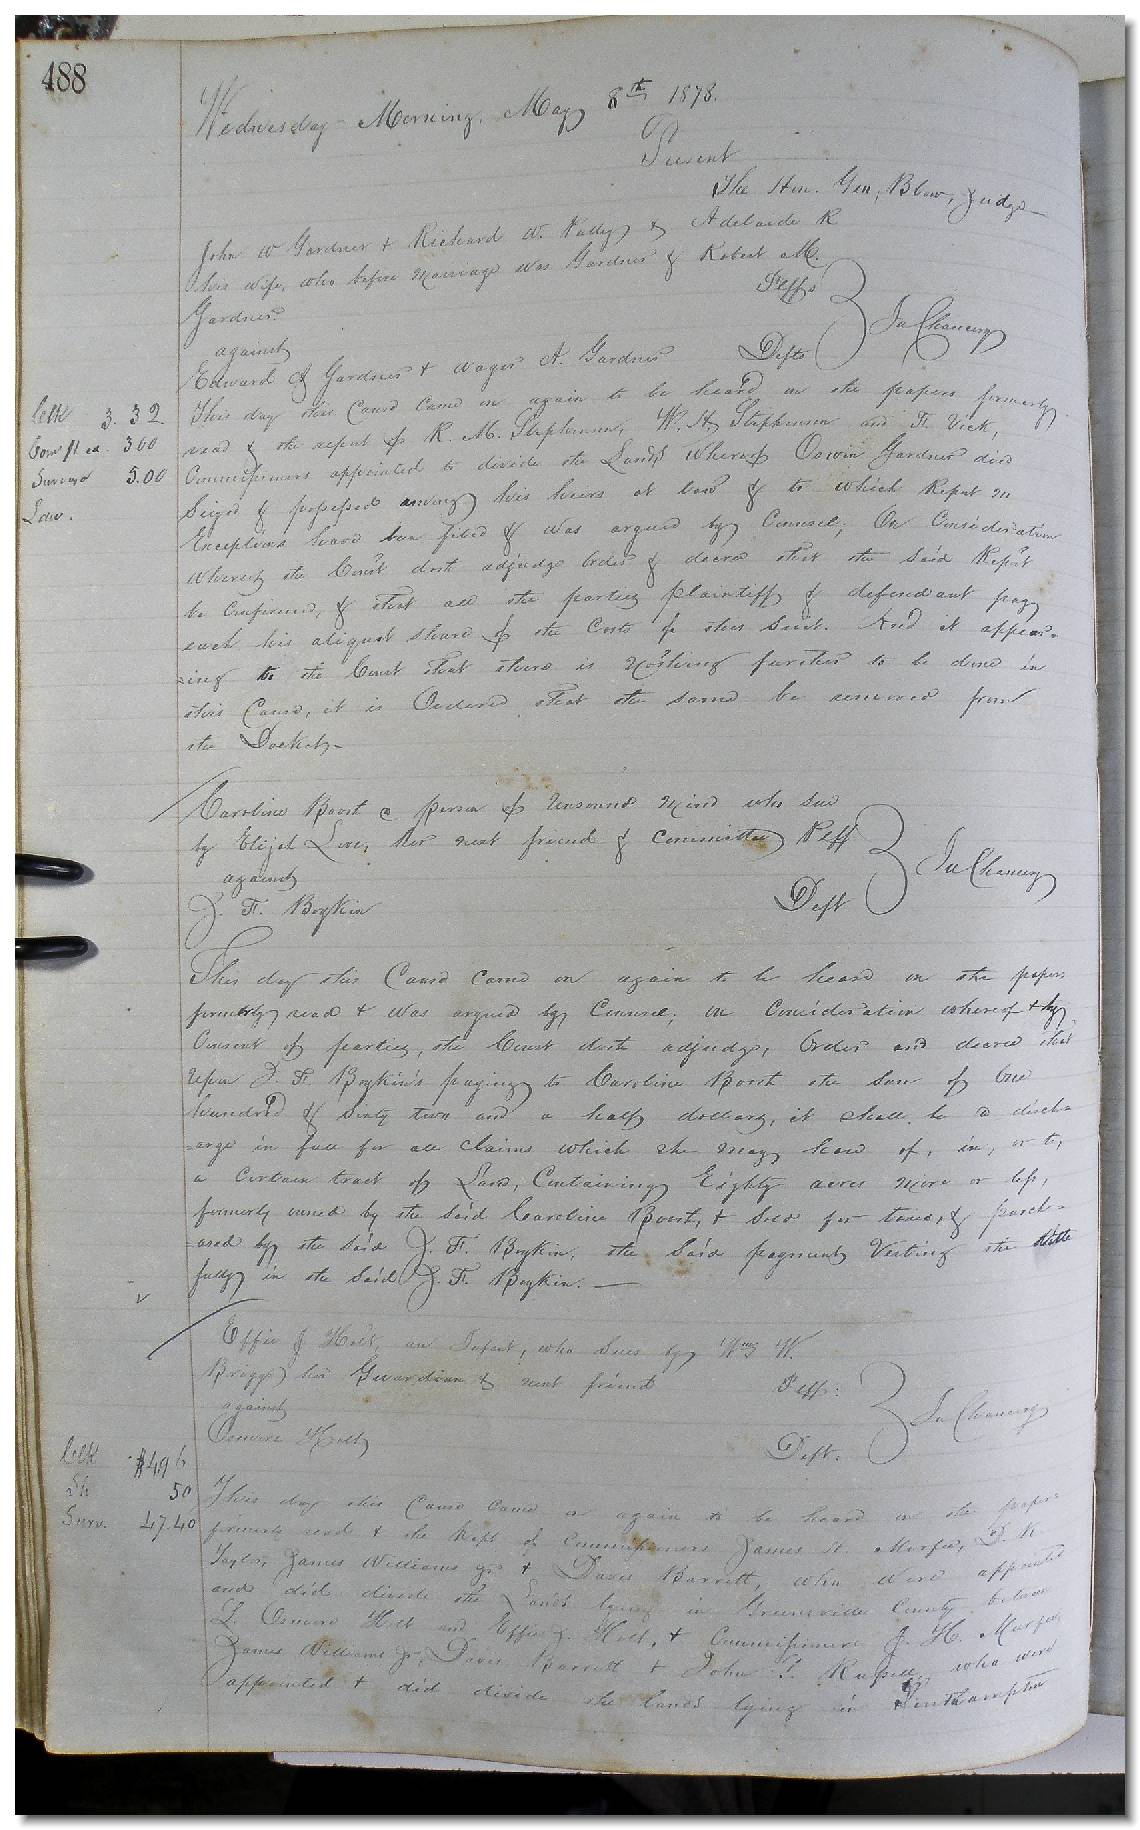 488
Wednesday Morning, May 8th 1878.
Present
The Hon. Geo, Blow, Judge
John W Gardner & Richard W. & Adelaide R
his wife, who before marriage was Gardner & Robert M.
Gardner
Plffs
In Chancery
against
Edward J Gardner & A. Gardner
Defts
This day this Cause came on again to be heard on the papers formerly
read & the report of R. M. Stephenson, W. H. Stephenson and F. Vick,
Commissioners appointed to divide the Lands whereof Gardner died
Seized & possessed among his heirs at law & to which Report no
Exceptions have been filed & was argued by Counsel; On Consideration
whereof the Court doth adjudge order & decree that the said Report
be confirmed, & that all the parties plaintiff & defendant pay
each his aliquot share of the Costs of this Suit. And it appear-
-ing to the Court that there is nothing further to be done in
this Cause, it is Ordered that the same be removed from
the Docket.
Clk 3.32
3 00
Surveyor 5.00
Caroline Boost a person of unsound mind who sues
by Elijah, her next friend & committee Plff
In Chancery
against
J. F. Boykin
Deft
This day this Cause came on again to be heard on the papers
formerly read & was argued by Counsel, on Consideration whereof & by
Consent of parties, the Court doth adjudge, order and decree that
upon J. F. Boykin's paying to Caroline Boost the sum of One
hundred & sixty two and a half dollars, it shall be a disch-
-arge in full for all claims which she may have of, in, or to,
a certain tract of Land, Containing Eighty acres more or less,
formerly owned by the said Caroline Boost, & sold for taxes, & purch-
-ased by the said J. F. Boykin, the said payment Vesting the title
fully in the said J. F. Boykin.
Effie J Holt, an Infant, who sues by Wm W.
Briggs his Guardian & next friend
Plff.
In Chancery
against
Osmore Holt
Deft.
Clk $4.96
Sh 50
Surv. 47.40
This day this Cause came on again to be heard on the papers
formerly read & the Rept of Commissioners James H. Murfee, D. N.
Taylor, James Williams Jr & Davis Barrett, who were appointed
and did divide the Lands lying in Greensville County between
L. Osmore Holt and Effie J. Holt, & Commissioners J. H. Murfee,
James Williams Jr, Davis Barrett & John T. Russell, who were
appointed & did divide the lands lying in Southampton